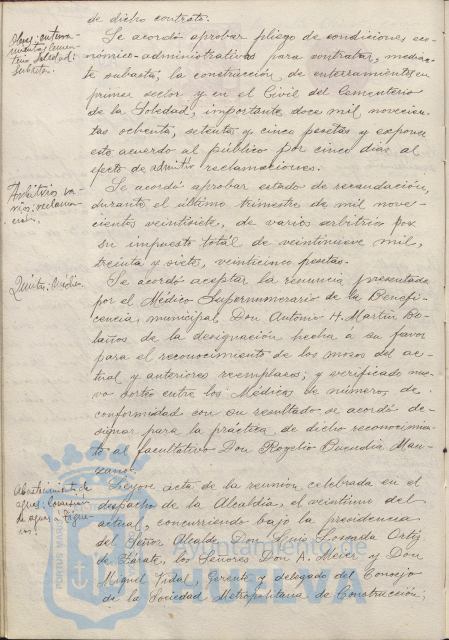 de dicho contrato.
Obras: enterra-
mientos cemen-
terio Soledad:
subasta.
Se acordó aprobar pliego de condiciones eco-
nómico-administrativas para contratar, median-
te subasta, la construcción, de enterramientos en
primer sector y en el Civil del Cementerio
de la Soledad, importante, doce mil novecien-
tas ochenta, setenta y cinco pesetas y exponer
este acuerdo al público por cinco dias al
efecto de admitir reclamaciones.
Arbitrios va-
rios:
Se acordó aprobar estado de recaudación,
durante el último trimestre de mil nove-
cientos veintisiete, de varios arbitrios por
su impuesto total de veintinueve mil,
treinta y siete, veinticinco pesetas.
Quintas: Médico.
Se acordó aceptar la renuncia presentada
por el Médico Supernumerario de la Benefi-
cencia municipal Don Antonio H. Martín Bo-
laños de la designación hecha á su favor
para el reconocimiento de los mozos del ac-
tual y anteriores reemplazos; y verificado nue-
vo sorteo entre los Médicos de número, de
conformidad con su resultado se acordó de-
signar para la práctica de dicho reconocimien-
to al facultativo Don Rogelio Buendía Man-
zano.
Abastecimiento de
aguas:
Leyose acta de la reunión celebrada en el
despacho de la Alcaldía, el veintiuno del
actual, concurriendo bajo la presidencia
del Señor Alcalde Don Luis Losada Ortiz
de Zárate, los Señores Don A. Meier y Don
Miguel Vidal, Gerente y delegado del Consejo
de la Sociedad Metropolitana de Construcción;
Ayuntamiento de
HUELVA